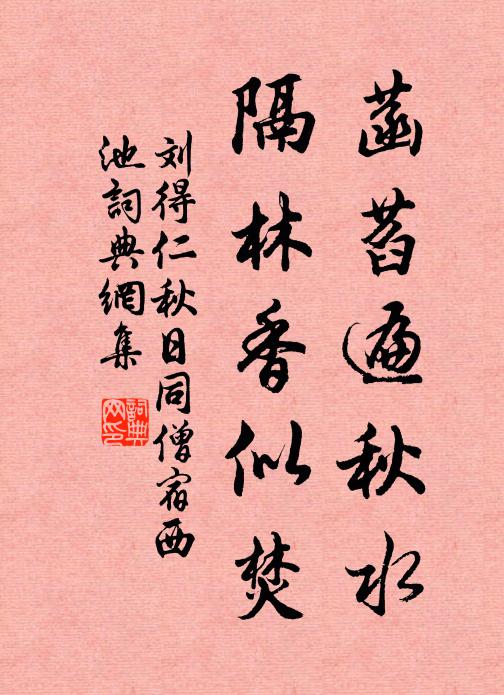 菡萏遍秋水
隔林香似焚
刘得仁秋日同僧宿西
池詞典網集
詞典
网印